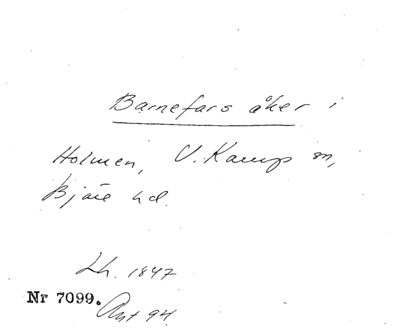 Barnefars åker i
Holmen, V. Karup sn,
Bjäre hd.
Lh. 1847
Nr 7099.
Ant 94